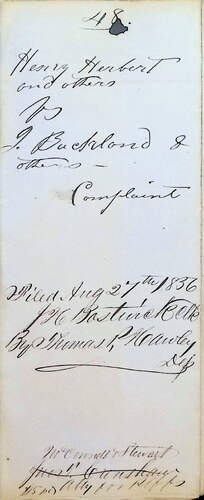 48.
Henry Herbert
and others
vs
J. Buckland &
others -
Complaint
Filed Aug 27th 1856
Bostwick Clk
By Thomas P. Hawley
Dep
McConnell & Stewart
Atty for Plffs